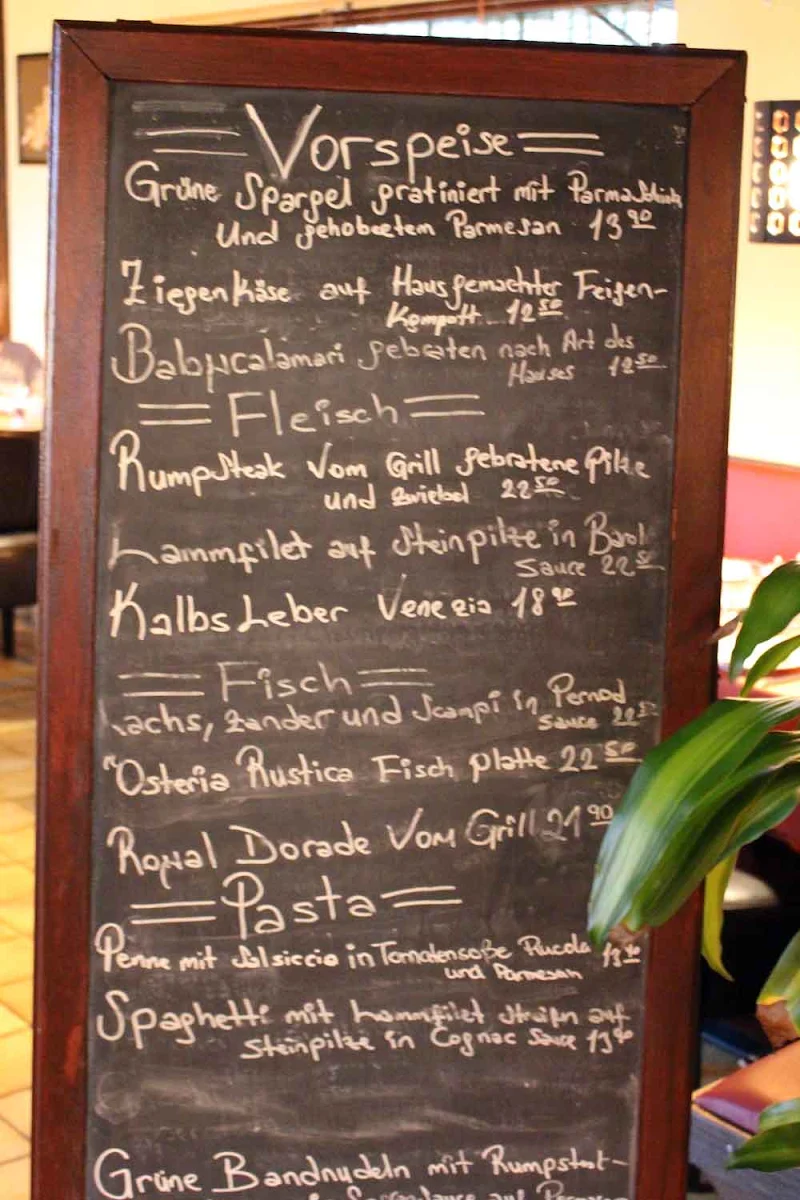 Vorspeise
Grüne Spargel gratiniert mit Parma Schink
Und gehobeetem Parmesan 13 90
Ziegenkäse auf Hausgemachter Feigen-
Kompott 12 50
Babycalamari gebraten nach Art des
Hauses 12 50
Fleisch
RumpSteak Vom Grill gebratene Pilze
und zwiebel 22 50
Lammfilet auf Steinpilze in Barol
Sauce 22 50
Kalbs Leber Venezia 18 90
Fisch
Lachs, Zander und Scampi in Pernod
Sauce 22 50
Osteria Rustica Fisch platte 22 50
Royal Dorade Vom Grill 21 90
Pasta
Penne mit Salsiccia in Tomatensoße Rucola 13 90
und Parmesan
Spaghetti mit Lammfilet streifen auf
Steinpilze in Cognac Sauce 13 90
Grüne Bandnudeln mit Rumpsteat-